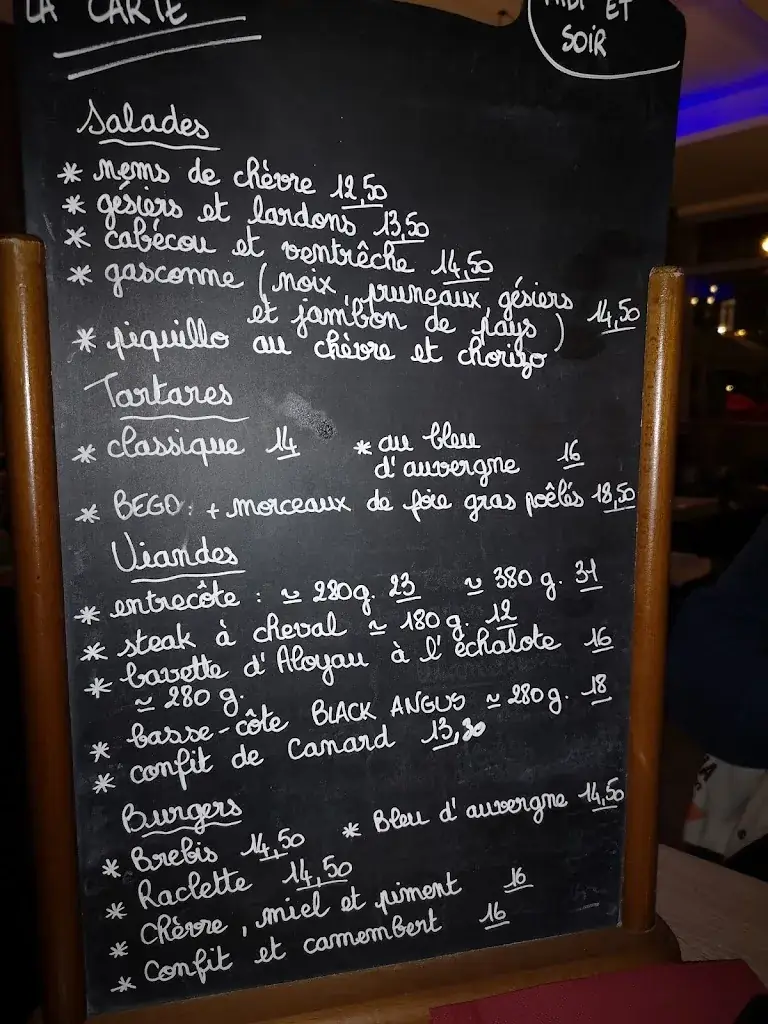 LA CARTE
MIDI ET
SOIR
Salades
* nems de chèvre 12,50
* gésiers et lardons 13,50
* cabécou et ventrêche 14,50
* gasconne (noix, pruneaux, gésiers
et jambon de pays) 14,50
* piquillo au chèvre et chorizo
Tartares
* classique 14 * au bleu
d'auvergne 16
* BEGO: + morceaux de foie gras poêlés 18,50
Viandes
* entrecôte : ≃ 280g. 23 ≃ 380 g. 31
* steak à cheval ≃ 180 g. 12
* bavette d'Aloyau à l'échalote 16
≃ 280 g.
* basse-côte BLACK ANGUS ≃ 280g. 18
* confit de Canard 13,30
Burgers
* Brebis 14,50 * Bleu d'auvergne 14,50
* Raclette 14,50
* Chèvre, miel et piment 16
* Confit et camembert 16